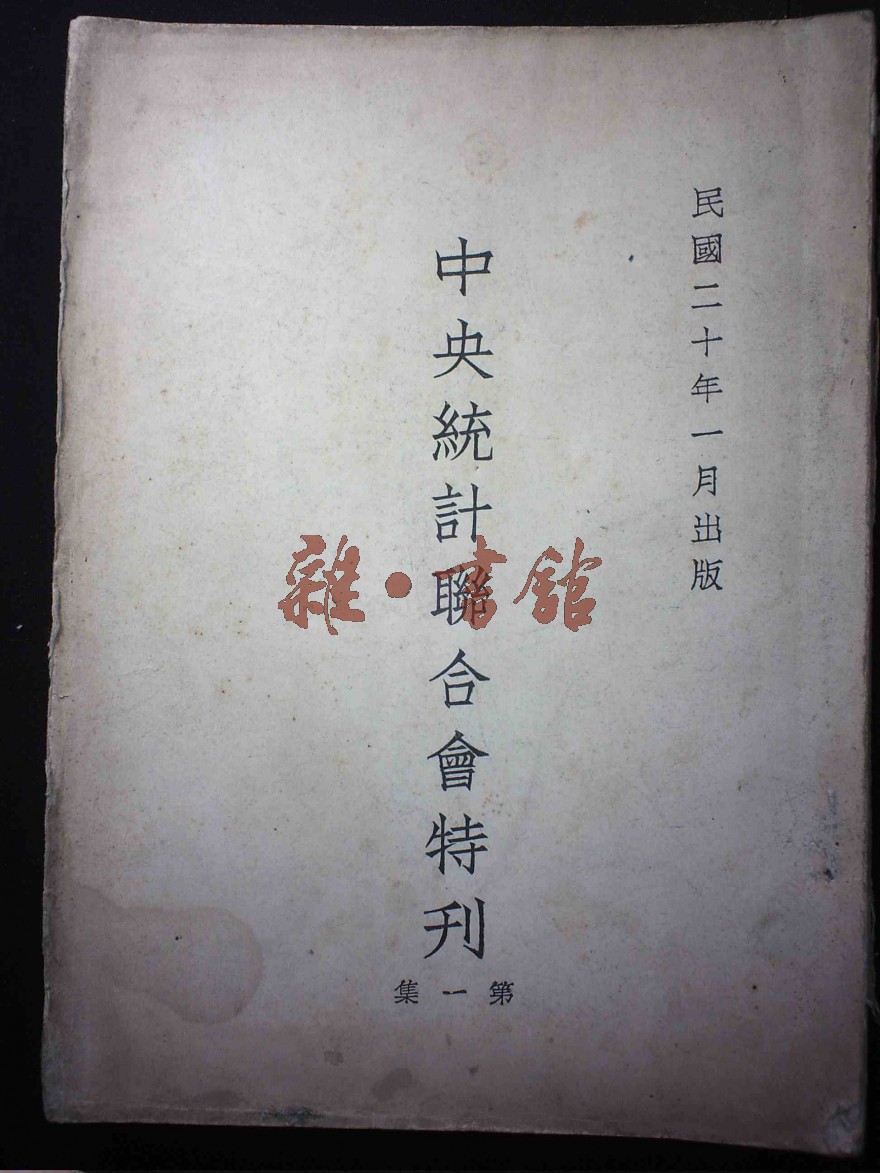 民國二十年一月出版
中央統計聯合會特刊
第一集
雜·書館